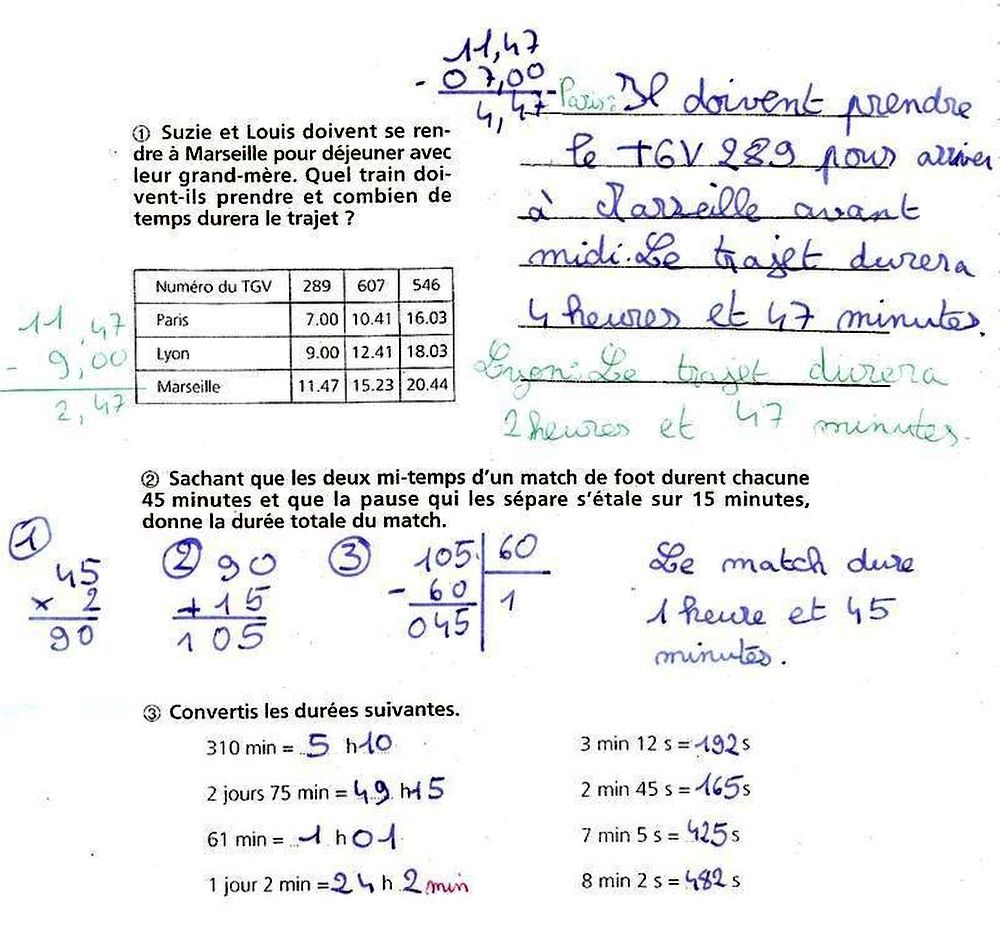 11,47
- 07,00
4,47
① Suzie et Louis doivent se ren-
dre à Marseille pour déjeuner avec
leur grand-mère. Quel train doi-
vent-ils prendre et combien de
temps durera le trajet ?
Paris: Il doivent prendre
le TGV 289 pour arriver
à Marseille avant
midi. Le trajet durera
4 heures et 47 minutes.
Lyon: Le trajet durera
2 heures et 47 minutes.
Numéro du TGV 289 607 546
Paris 7.00 10.41 16.03
Lyon 9.00 12.41 18.03
Marseille 11.47 15.23 20.44
11,47
- 9,00
2,47
② Sachant que les deux mi-temps d'un match de foot durent chacune
45 minutes et que la pause qui les sépare s'étale sur 15 minutes,
donne la durée totale du match.
①
45
x 2
90
②
90
+15
105
③
105 60
- 60 1
045
Le match dure
1 heure et 45
minutes.
③ Convertis les durées suivantes.
310 min = 5 h 10
2 jours 75 min = 49 h 15
61 min = 1 h 01
1 jour 2 min = 24 h 2 min
3 min 12 s = 192 s
2 min 45 s = 165 s
7 min 5 s = 425 s
8 min 2 s = 482 s